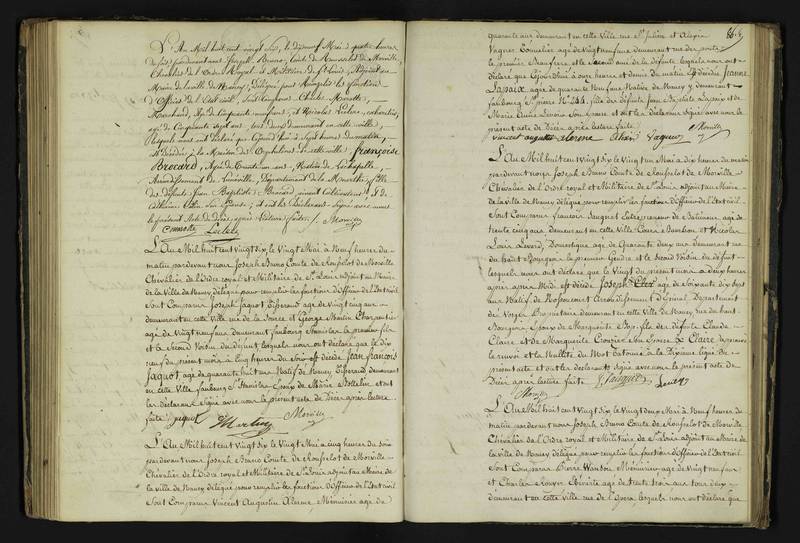 L'An Mil huit cent vingt six, le dixneuf Mai à quatre heures
du soir pardevant nous Joseph Bruno, Comte de Rousselot de Morville,
Chevalier de l'Ordre Royal et Militaire de St Louis, Adjoint au
Maire de la ville de Nancy, Délégué pour Remplir les fonctions
d'Officier de l'Etat civil, sont Comparus Charles
Marchand, Agé de Cinquante ans, et Nicolas Leclerc,
agé de Cinquante Sept ans, tous deux demeurant en cette ville,
lesquels nous ont déclaré que Cejourd'hui à Sept heures du matin,
est décédée à la Maison des Orphelines de cette ville françoise
Brocard, Agée de ans, Native de
Arrondissement de Lunéville, Département de la Meurthe, fille
des défunts Jean Baptiste Brocard vivant Cultivateur, et de
Catherine son Epouse; et ont les Déclarants Signé avec nous
le présent Acte de Décès, après lecture faite. Morville
Leclerc
L'An Mil huit cent vingt six, le vingt Mai à neuf heures du
matin pardevant nous Joseph Bruno Comte de Rousselot de Morville
Chevalier de l'Ordre royal et Militaire de St Louis adjoint au Maire
de la Ville de Nancy délégué pour remplir les fonctions d'Officier de l'Etat civil
Sont Comparus Joseph Jaquot Tisserand agé de vingt cinq ans
demeurant en cette Ville rue de la Source et George Martin Charpentier
agé de vingt ans demeurant faubourg Stanislas le premier fils
et le Second Voisin du défunt lesquels nous ont déclaré que le dix
neuf du présent mois à cinq heures du Soir est décédé Jean françois
Jaquot, agé de quarante huit ans Natif de Nancy Tisserand demeurant
en cette Ville faubourg St Stanislas Epoux de Marie et ont
les déclarants Signé avec nous le présent acte de Décès après lecture
faite. jaquot Martin Morville
L'An Mil huit cent Vingt Six le Vingt Mai à cinq heures du Soir
pardevant nous Joseph Bruno Comte de Rousselot de Morville
Chevalier de l'Ordre royal et Militaire de St Louis adjoint au Maire de
la ville de Nancy délégué pour remplir les fonctions d'Officier de l'Etat civil
Sont Comparus Vincent Augustin Menuisier agé de
quarante ans demeurant en cette Ville rue St Julien et Alexis
Vagner Tonnelier agé de Vingt neuf ans demeurant rue des
le premier Beaufrere et le Second ami de la défunte lesquels nous ont
déclaré que Cejourd'hui à une heure et demie du matin est décédée Jeanne
Lapaix agée de quarante Neuf ans Native de Nancy y demeurant
faubourg St pierre No fille des défunts Jean Baptiste Lapaix et de
Marie Anne Son Epouse, et ont les déclarants Signé avec nous le
présent acte de Décès après lecture faite. Morville
vincent augustin Alexis Vagner
L'An Mil huit cent Vingt Six le Vingt Mai à dix heures du matin
pardevant nous Joseph Bruno Comte de Rousselot de Morville
Chevalier de l'Ordre royal et Militaire de St Louis adjoint au Maire
de la ville de Nancy délégué pour remplir les fonctions d'Officier de l'Etat civil
Sont Comparus françois Jacquot Entrepreneur de Batiments agé de
trente cinq ans demeurant en cette Ville Cour Bourbon et Nicolas
Domestique agé de Quarante deux ans demeurant rue
du haut Bourgeois le premier Gendre et le Second Voisin du défunt
lesquels nous ont déclaré que le Vingt du présent mois à deux heures
après Midi est décédé Joseph agé de Soixante dix Sept
ans Natif de Arrondissement d'Epinal Département
des Vosges Propriétaire demeurant en cette Ville de Nancy rue du haut
Bourgeois Epoux de Marguerite fils des défunts Claude
Claire et de Marguerite Son Epouse
le renvoi et la Nullité du Mot batonné à la ligne du
présent acte et ont les déclarants Signé avec nous le présent acte de
Décès après lecture faite. Jacquot
Morville
L'An Mil huit cent Vingt Six le Vingt deux Mai à Neuf heures du
matin pardevant nous Joseph Bruno Comte de Rousselot de Morville
Chevalier de l'Ordre royal et Militaire de St Louis adjoint au Maire de
la ville de Nancy délégué pour remplir les fonctions d'Officier de l'Etat civil
Sont Comparus Pierre Menuisier agé de Vingt neuf ans
et Charles Ebeniste agé de trente trois ans tous deux
demeurant en cette Ville rue de l'Opera lesquels nous ont déclaré que